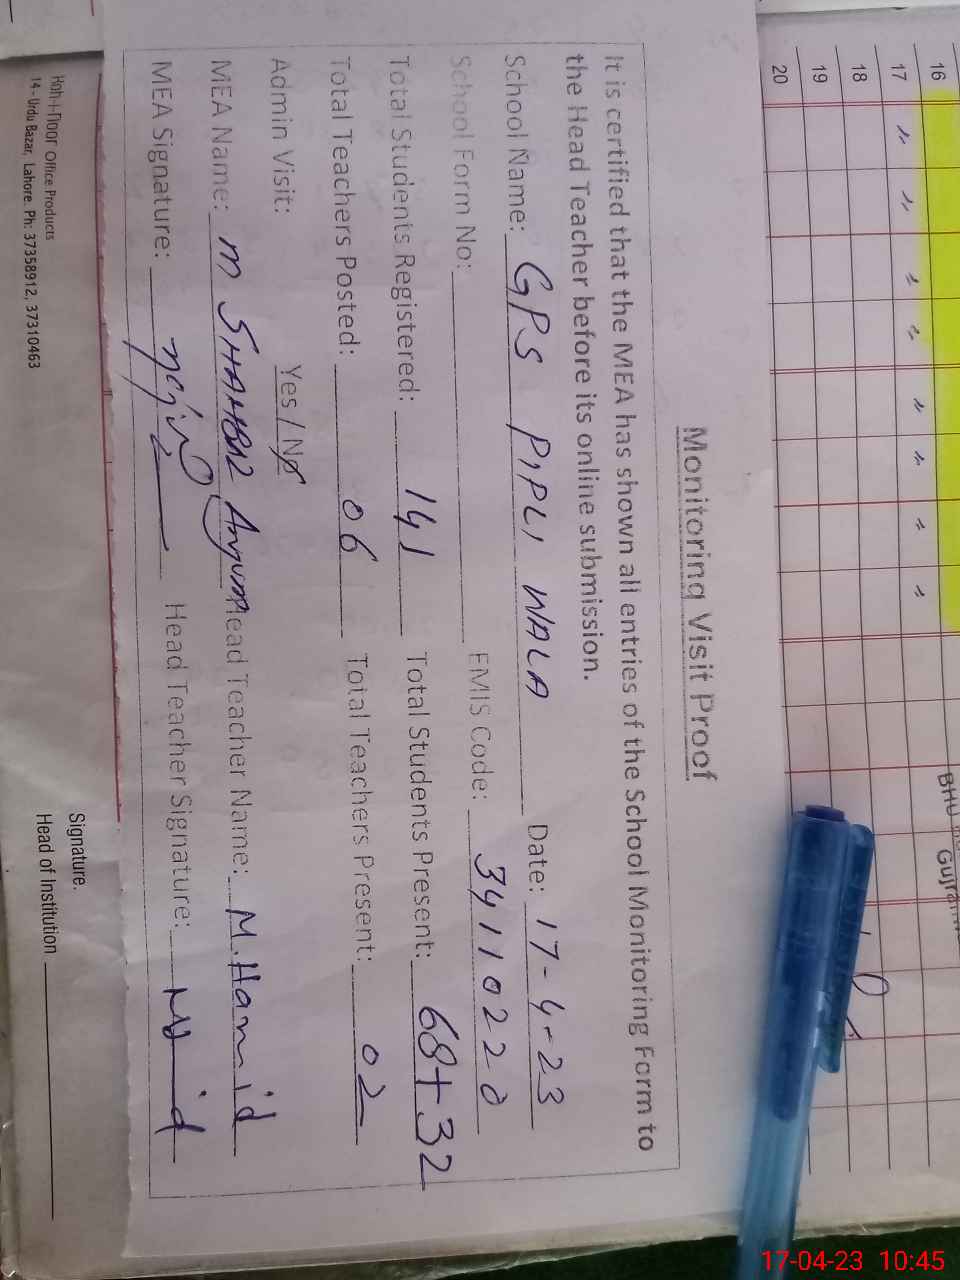 16
17
18
19
20
BHU
Monitoring Visit Proof
It is certified that the MEA has shown all entries of the School Monitoring Form to
the Head Teacher before its online submission.
School Name: GPS PiPLi WALA Date: 17-4-23
School Form No: EMIS Code: 34110220
Total Students Registered: 141 Total Students Present: 68+32
Total Teachers Posted: 06 Total Teachers Present: 02
Admin Visit: Yes / No
MEA Name: M SHAHBAZ Anjum Head Teacher Name: M. Hamid
MEA Signature: Head Teacher Signature:
Signature.
Head of Institution
Koh-i-noor Office Products
14 - Urdu Bazar, Lahore. Ph: 37358912, 37310463
17-04-23 10:45